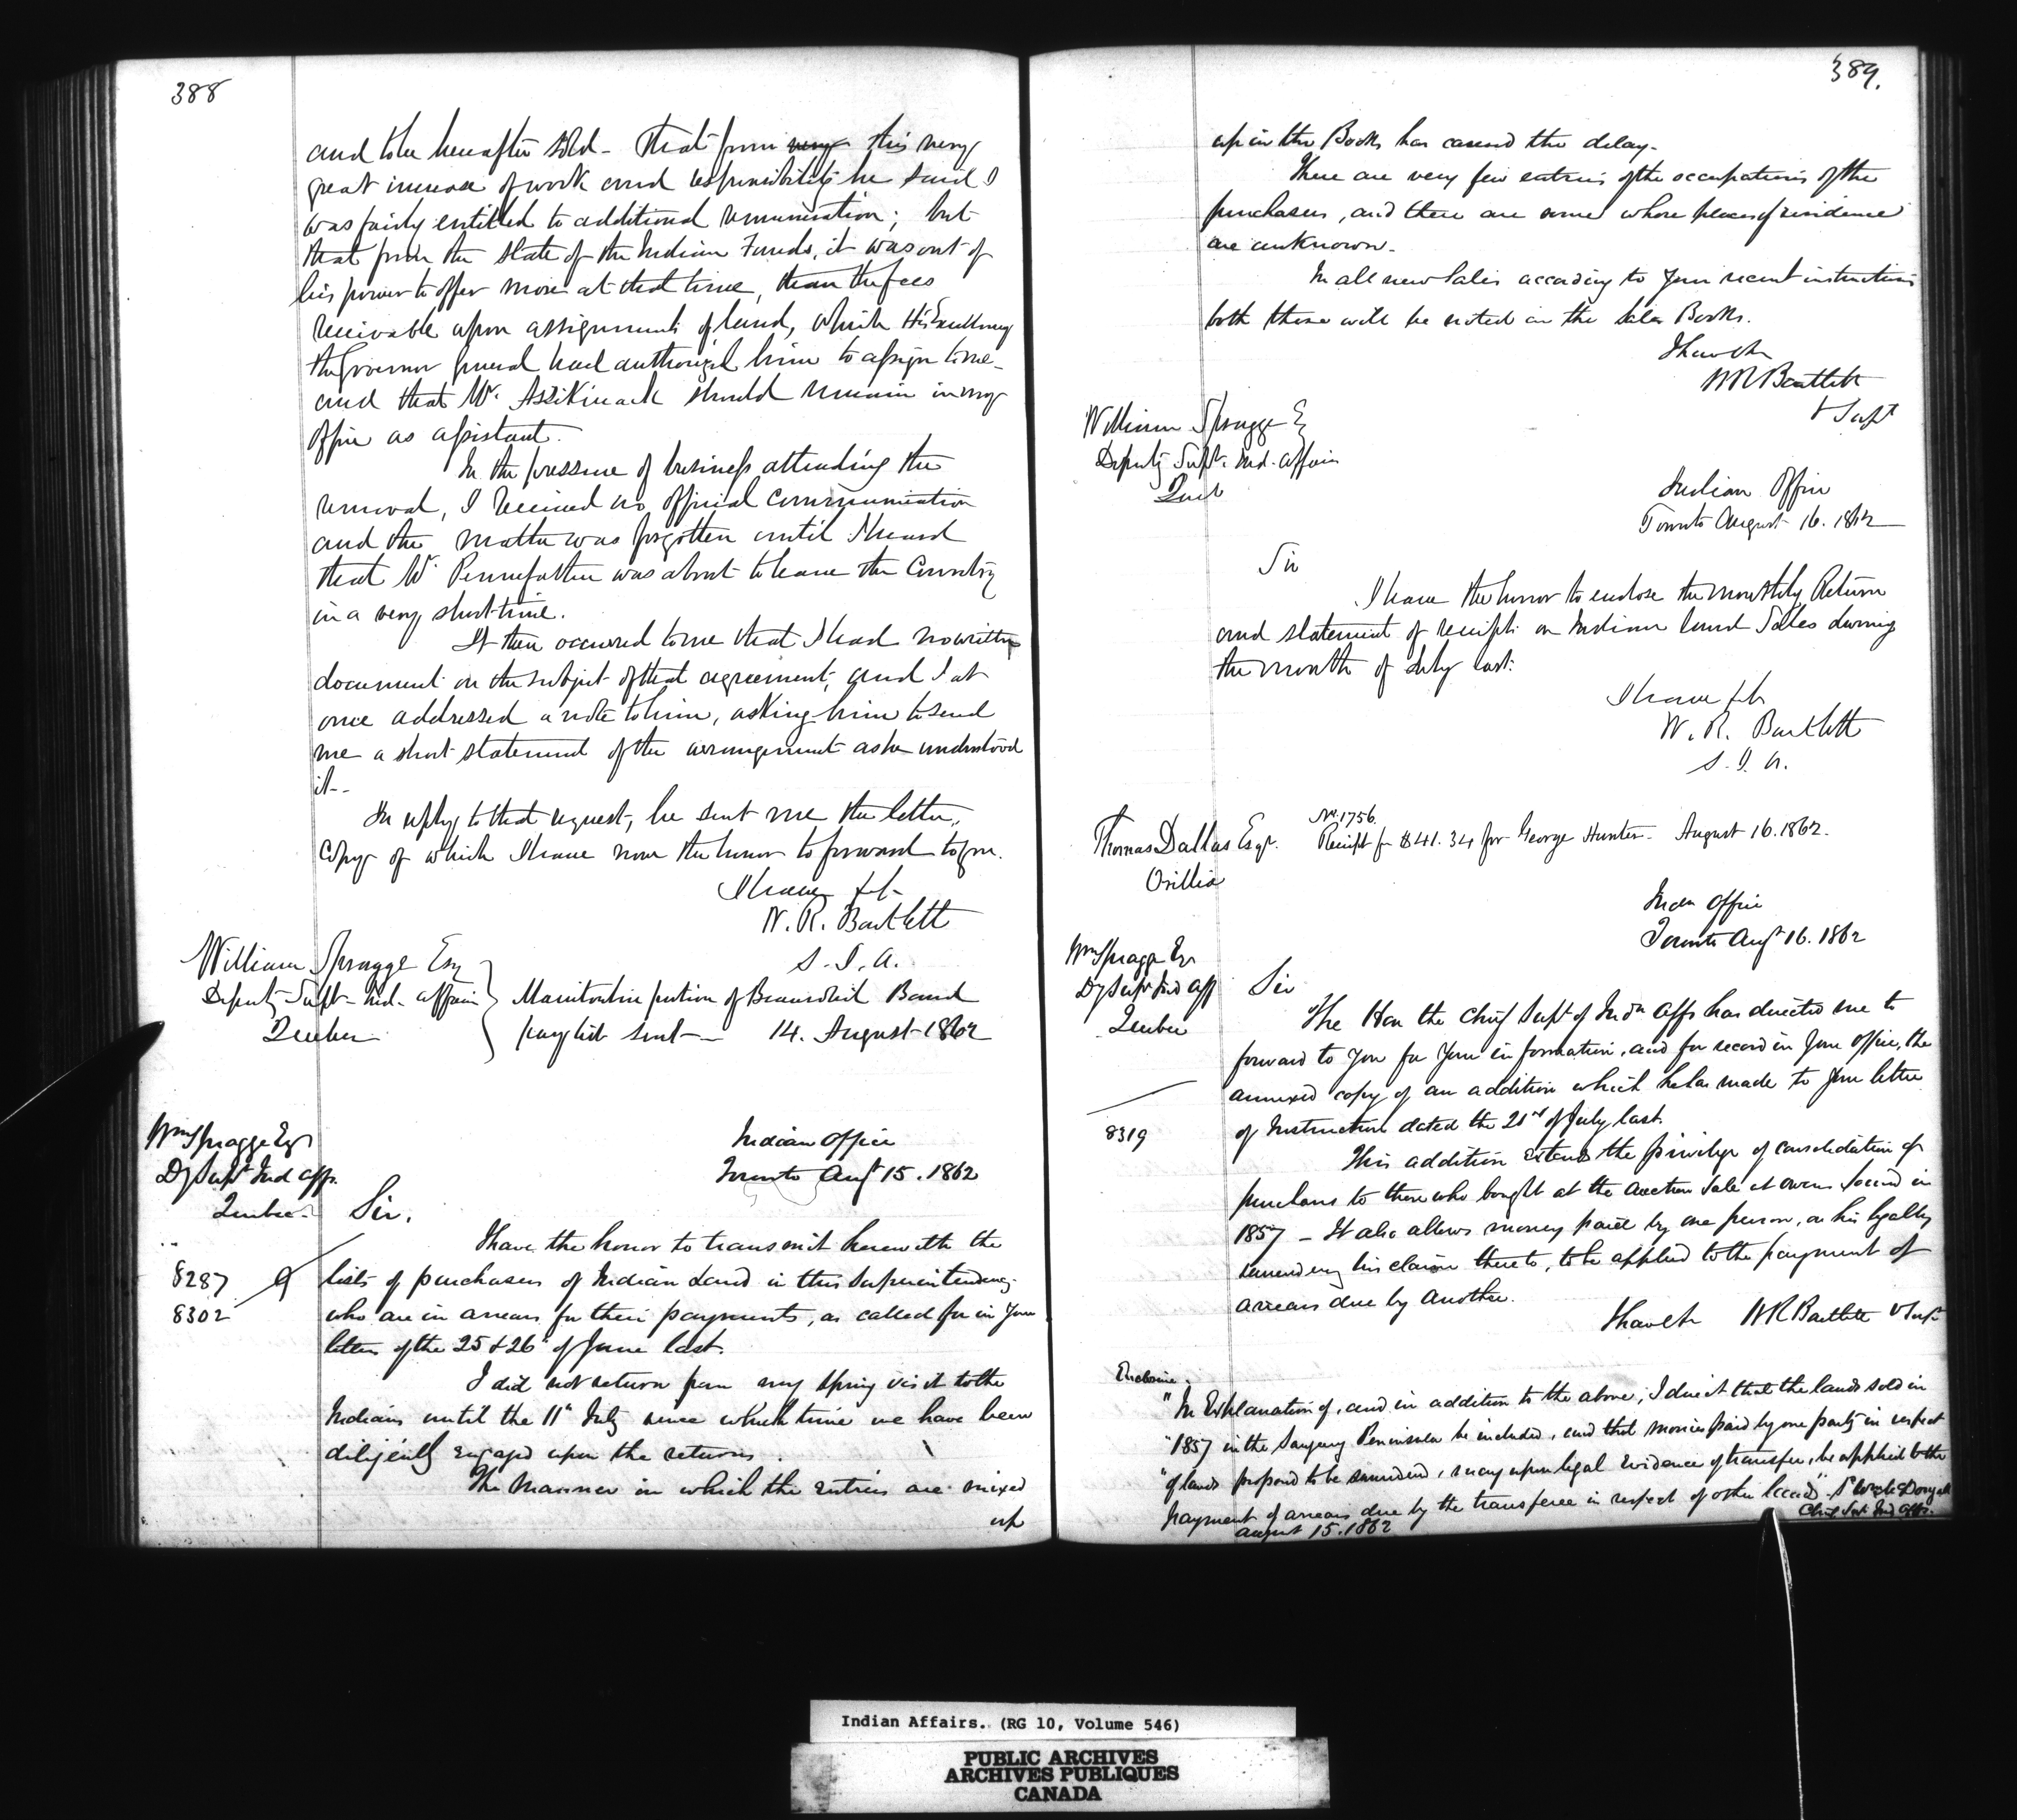 388
and to be hereafter sold - That from very this very
great increase of work and responsibility he said I
was fairly entitled to additional remuneration; but
that from the state of the Indian Funds, it was out of
his power to offer more at that time, than the fees
receivable upon assignments of land, which His Excellency
the Governor General had authorized him to assign to me -
and that Mr. Assikinack should remain in my
Office as assistant.
In the pressure of business attending the
removal, I received no official communication
and the matter was forgotten until I heard
that Mr Pennefather was about to leave the Country
in a very short time.
It then occurred to me that I had no written
document on the subject of that agreement, and I at
once addressed a note to him, asking him to send
me a short statement of the arrangement as he understood
it--
In reply to that request, he sent me the letter,
Copy of which I have now the honor to forward to you.
I have &c
W. R. Bartlett
S. I. A.
William Spragge Esq
Deputy Supt- Ind- Affairs
Quebec
Manitoulin portion of Beausoleil Band
pay list sent - 14. August 1862
Wm Spragge Esqr
Dy Supt Ind Affs.
Quebec
Indian Office
Toronto Augt 15. 1862
Sir.
I have the honor to transmit herewith the
8287
lists of purchasers of Indian Land in this Superintendency
8302
who are in arrears for their payments, as called for in your
letters of the 25 & 26th of June last.
I did not return from my Spring visit to the
Indians until the 11th July since which time we have been
diligently engaged upon the returns.
The Manner in which the entries are mixed
up
389.
up in the Books has caused the delay.
There are very few entries of the occupations of the
purchasers, and there are some whose places of residence
are unknown.
In all new Sales according to your recent instructions
both these will be noted in the Sales Books.
I have &c
WR Bartlett
V Supt
William Spragge Esq
Deputy Supt. Ind. Affairs
Queb
Indian Office
Toronto August 16. 1862
Sir
I have the honor to enclose the monthly Return
and statement of receipts on Indian land Sales during
the month of July last.
I have &c
W. R. Bartlett
S. I. A.
Thomas Dallas Esqr.
Orillia
No. 1756.
Receipt for $41.34 for George Hunter - August 16. 1862.
Indn Office
Toronto Augt 16. 1862
Wm Spragge Esqr
Dy Supt Ind Aff
Quebec
Sir
The Hon the Chief Supt of Indn Affs has directed me to
forward to you for your information, and for record in your office, the
annexed copy of an addition which he has made to your letter
8319
of Instruction dated the 21st of July last.
This addition extends the privilege of consolidation of
purchase to those who bought at the Auction Sale at Owen Sound in
1857 - It also allows money paid by one person, on his legally
surrendering his claim thereto, to be applied to the payment of
arrears due by another.
I have &c WR Bartlett V Supt
Enclosure.
"In Explanation of, and in addition to the above, I direct that the lands sold in
"1857 in the Saugeeng Peninsula be included, and that monies paid by one party in respect
"of lands proposed to be surrendered, may upon legal evidence of transfer, be applied to the
payment of arrears due by the transferee in respect of other lands"
Wm McDougall
Chief Supt Ind Affs.
August 15. 1862
Indian Affairs. (RG 10, Volume 546)
PUBLIC ARCHIVES
ARCHIVES PUBLIQUES
CANADA